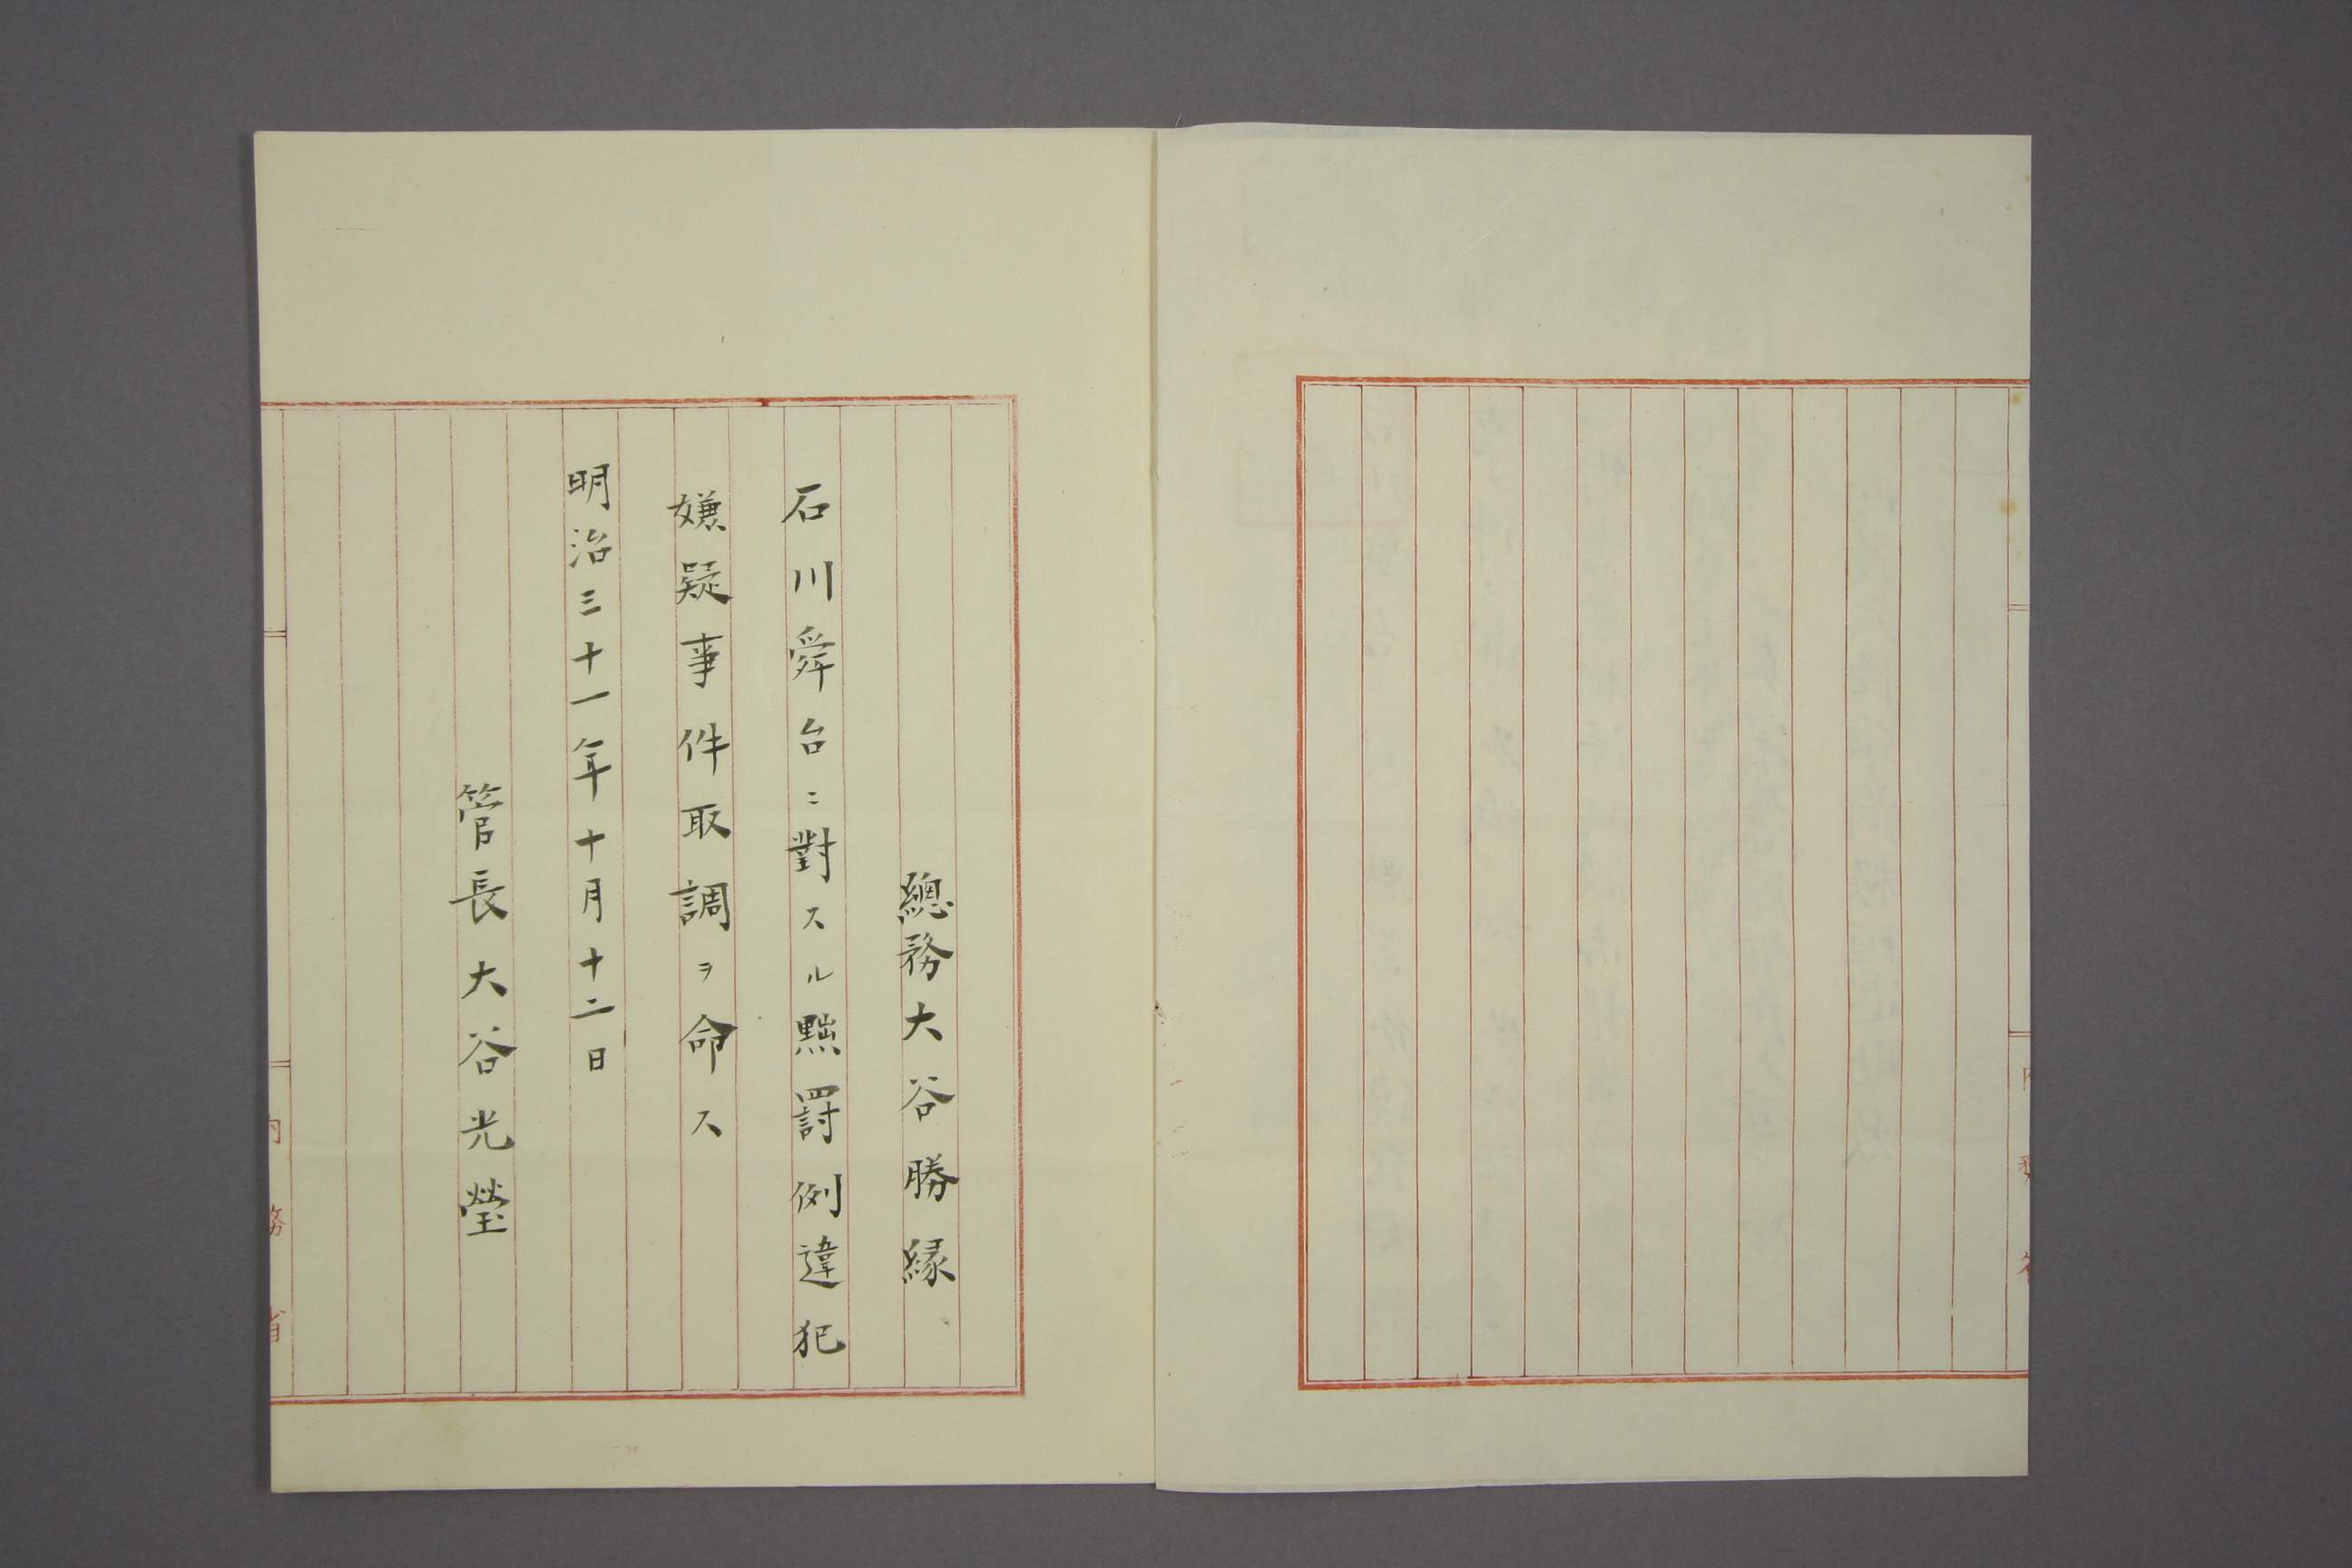 總務大谷勝縁
石川舜台ニ對スル黜罰例違犯
嫌疑事件取調ヲ命ス
明治三十一年十月十二日
管長大谷光瑩
内務省